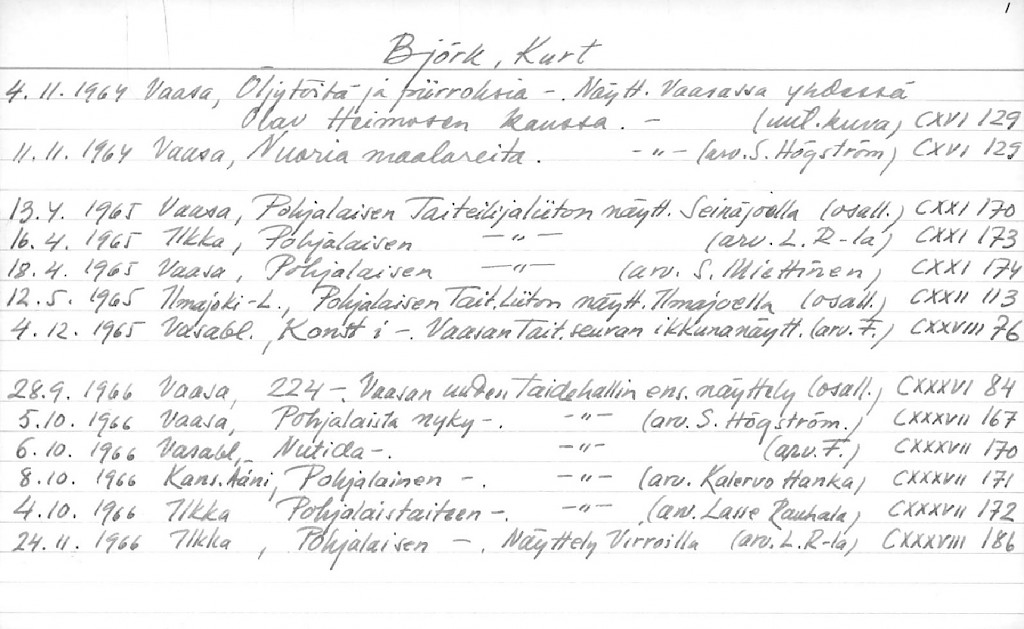 1
Björk, Kurt
4.11.1964 Vaasa, Öljytöitä ja piirroksia -. Näytt. Vaasassa yhdessä
Olav Heimosen kanssa. - (uut.kuva) CXVI 129
11.11.1964 Vaasa, Nuoria maalareita. -"- (arv.S.Högström) CXVI 129
13.4.1965 Vaasa, Pohjalaisen Taiteilijaliiton näytt. Seinäjoella (osall.) CXXI 170
16.4.1965 Ilkka, Pohjalaisen -"- (arv. L.R-la) CXXI 173
18.4.1965 Vaasa, Pohjalaisen -"- (arv. S. Miettinen) CXXI 174
12.5.1965 Ilmajoki-L., Pohjalaisen Tait.liiton näytt. Ilmajoella (osall.) CXXII 113
4.12.1965 Vasabl., Konst i -. Vaasan Tait.seuran ikkunanäytt. (arv. F.) CXXVIII 76
28.9.1966 Vaasa, 224 -. Vaasan uuden Taidehallin ens. näyttely (osall.) CXXXVI 84
5.10.1966 Vaasa, Pohjalaista nyky-. -"- (arv. S. Högström.) CXXXVII 167
6.10.1966 Vasabl., Nutida -. -"- (arv. F.) CXXXVII 170
8.10.1966 Kans.Ääni, Pohjalainen -. -"- (arv. Kalervo Hanka) CXXXVII 171
4.10.1966 Ilkka Pohjalaistaiteen -. -"- (arv. Lasse Rauhala) CXXXVII 172
24.11.1966 Ilkka, Pohjalaisen -. Näyttely Virroilla (arv. L.R-la) CXXXVIII 186